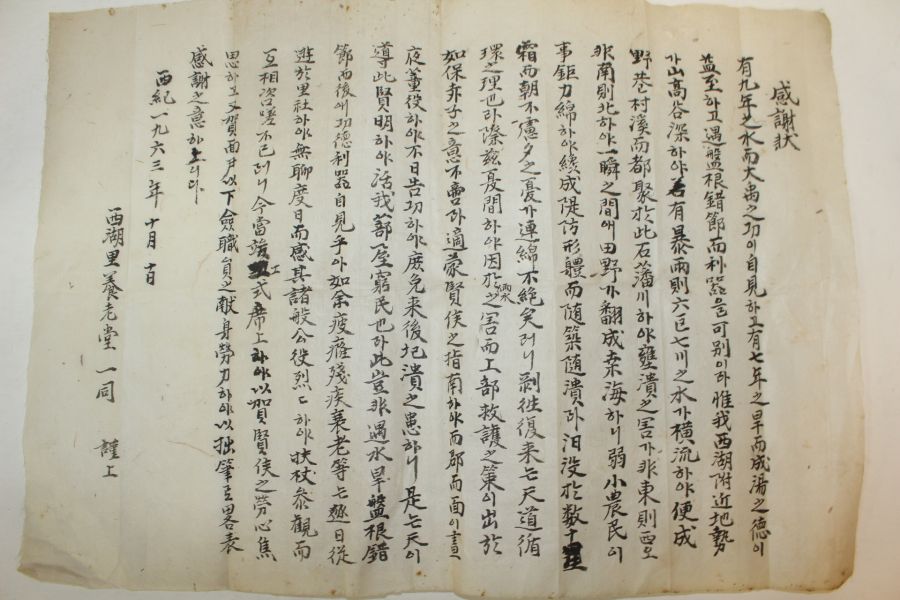 感謝狀
有九年之水而大禹之功이自見하고有七年之旱而成湯之德이
益至하고遇盤根錯節而利器을可別이라惟我西湖附近地勢
가山高谷深하야若有暴雨則六巨七川之水가橫流하야便成
野巷村溪而都聚於此石藩川하야壅潰之害가非東則西오
非南則北하야一瞬之間에田野가翻成桒海하니弱小農民이
事鉅力綿하야緩成隄防形軆而随築随潰라汨没於数十
霜而朝不慮夕之憂가連綿不絶矣러니剝徃復来는天道循
環之理也라際玆憂間하야因於此水之害而上部救護之策이出於
如保赤子之意不啻라適蒙賢侯之指南하야而郡而面이晝
夜董役하야不日告功하야庶免来後圮潰之患하니是는天이
導此賢明하야活我蔀屋窮民也라此豈非遇水旱盤根錯
節而後에功德利器自見乎아如余疲癃殘疾衰老等는趂日從
遊於里社하야無聊度日而感其諸般公役烈々하야扶杖参觀而
互相咨嗟不已러니今當竣工式席上하야以賀賢侯之勞心焦
思하고又賀面尹以下僉職員之献身勞力하야以拙筆로畧表
感謝之意하노니다
西紀一九六三年 十月 十日
西湖里養老堂 一同 謹上